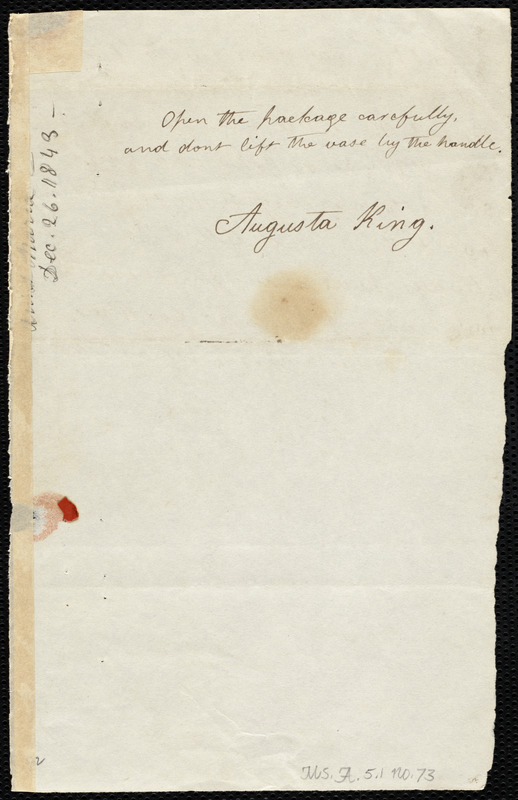 Open the package carefully,
and dont lift the vase by the handle.
Augusta King.
Dec. 26. 1843 -
Ms. A. 5.1 No. 73